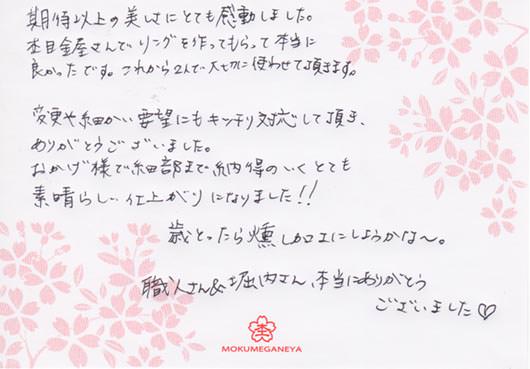 期待以上の美しさにとても感動しました。
杢目金屋さんでリングを作ってもらって本当に
良かったです。これから2人で大切に使わせて頂きます。
変更や細かい要望にもキッチリ対応して頂き、
ありがとうございました。
おかげ様で細部まで納得のいくとても
素晴らしい仕上がりになりました!!
歳とったら燻し加工にしようかな〜。
職人さん&堀内さん、本当にありがとう
ございました♡
MOKUMEGANEYA